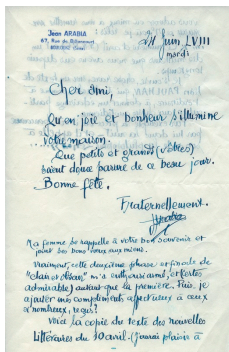 Jean ARABIA
67, Rue du Rouet
24 Juin LVIII
mardi
Cher ami,
Qu'en joie et bonheur s'illumine
votre maison.
Que petits et grands (vôtres)
soient douce parure de ce beau jour.
Bonne fête.
Fraternellement.
Ma femme se rappelle à votre bon souvenir et
joint ses bons vœux aux miens.
Vraiment, cette deuxième phase et finale de
m'a enthousiasmé, et (certes
admirable) autant que la première. Puis-je
ajouter mes compliments affectueux à ceux
nombreux, reçus?
Voici la copie du texte des nouvelles
littéraires du 10 avril. (J'aurai plaisir à